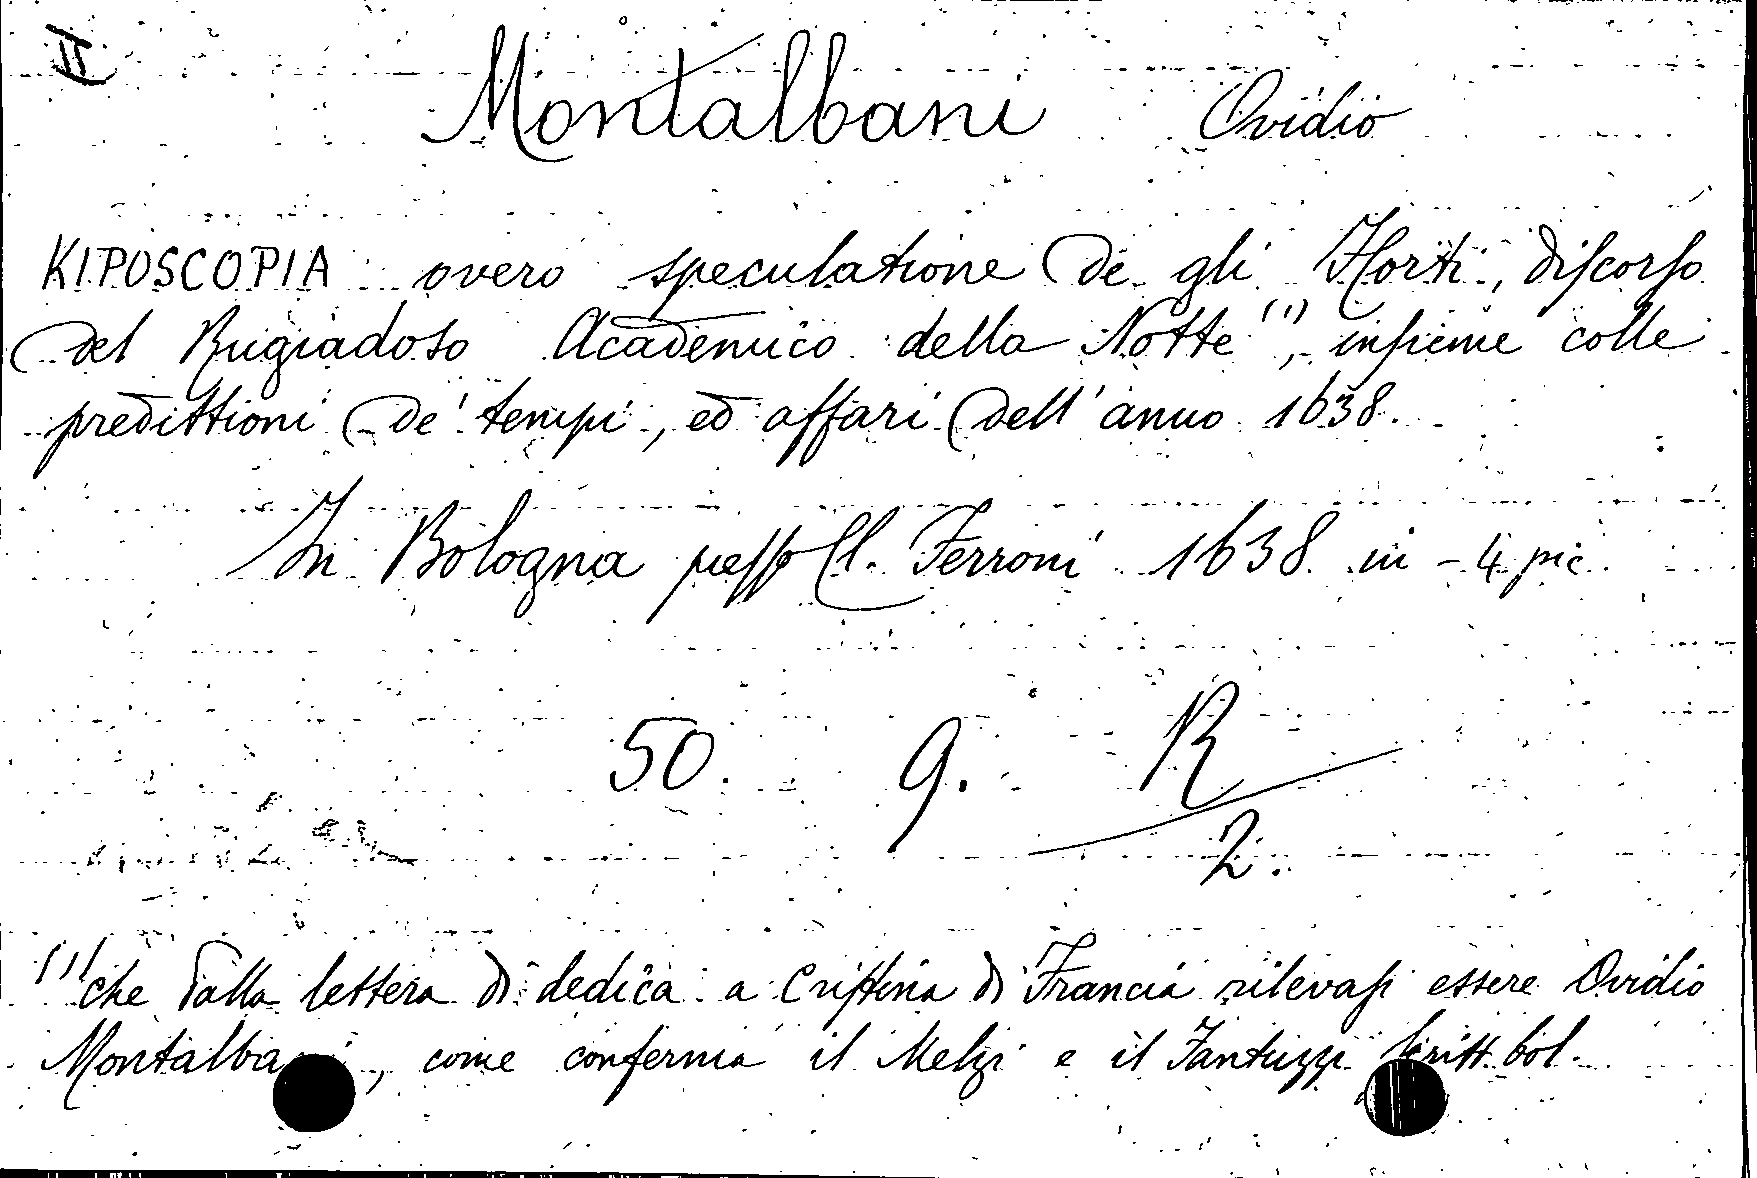 II
Montalbani Ovidio
KIPOSCOPIA overo speculatione de gli Horti, diſcorſo
del Rugiadoso Academico della Notte (1), inſieme colle
predittioni de' tempi, ed affari dell' anno 1638.
In Bologna preſſo Cl. Ferroni 1638 in-4 pic.
50. 9. R
2.
(1) che dalla lettera di dedica a Criſtina di Francia rilevaſi essere Ovidio
Montalbani, come conferma il Melzi e il Fantuzzi Scritt. bol.